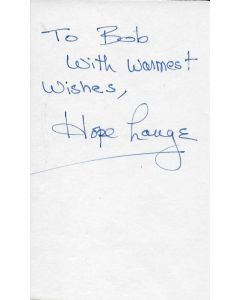 To Bob
With Warmest
Wishes,
Hope Lange